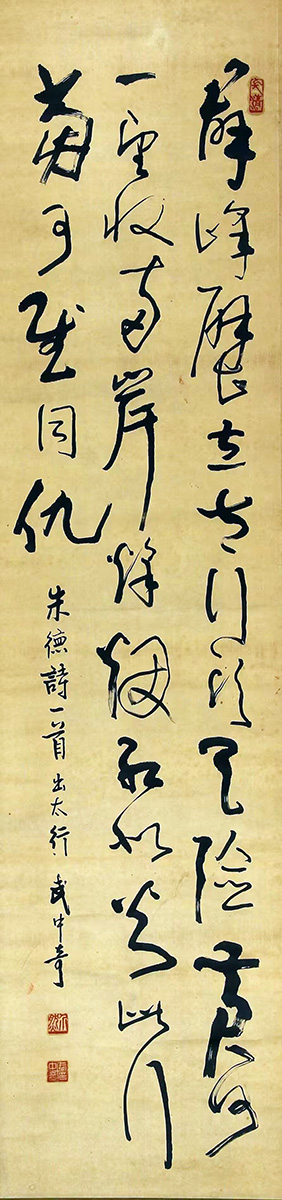 群峰壁立太行頭天險黃河
一望收兩岸烽煙紅似火此行
當可慰同仇
朱德詩一首 出太行 武中奇